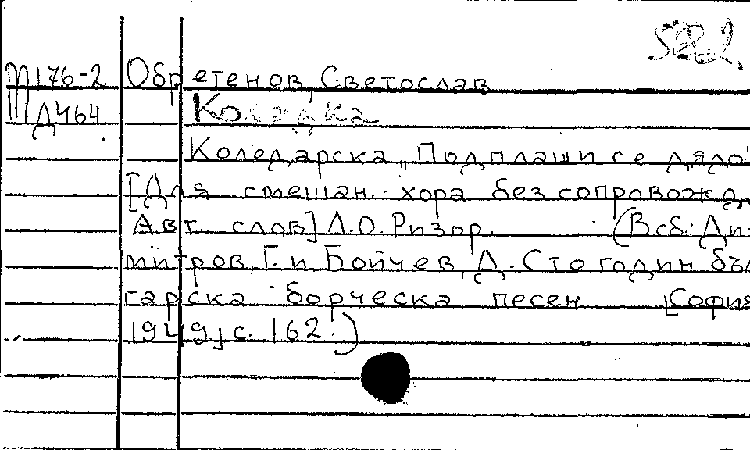 М176-2 Обретенов, Светослав
Д464 Коледарка
Коледарска „Подплаши се дядо"
[Для смешан. хора без сопровожд.
Авт. слов] Л.О. Ризор. (В сб: Ди-
митров Г. и Бойчев, Д. Сто годин бъл
гарска борческа песен [София
1949, с. 162.)